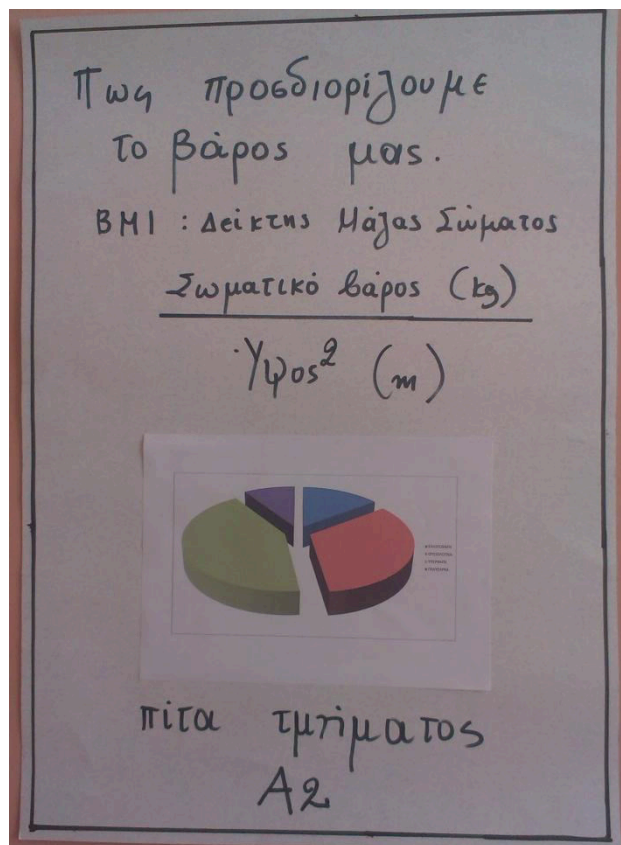 Πως προσδιορίζουμε
το βάρος μας.
BMI : Δείκτης Μάζας Σώματος
Σωματικό βάρος (kg)
Ύψος² (m)
πίτα τμήματος
Α2